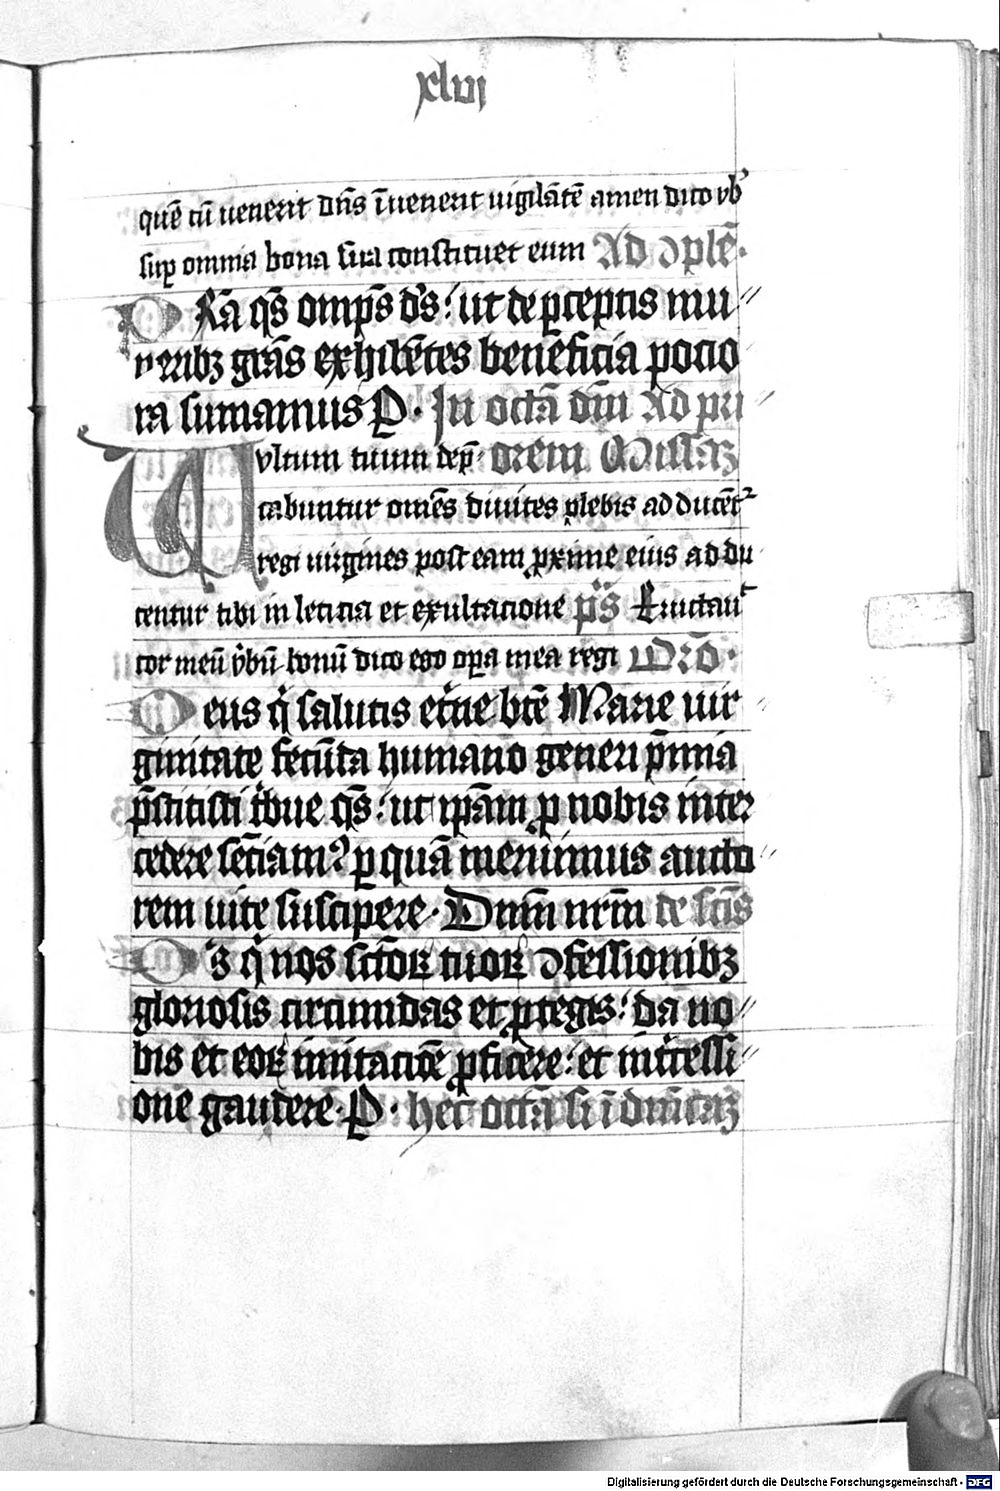 xlvij
quē cū uenerit dn̄s īuenerit uigilātē amen dico vob
suꝑ omnia bona sua constituet eum Ad ↄplē.
Ora q̄s omps d̄s: ut de ꝑceptis mu
neribꝫ grās exhibētes beneficia pocio
ra sumamus P. In octā dn̄i Ad pri
Vltum tuum dep̄ orem Missaꝫ
cabuntur om̄s diuites plebis adducēt᷑
regi uirgines post eam ꝓxime eius addu
centur tibi in leticia et exultacione p̄s Eructau᷑
cor meū ỽbū bonū dico ego oꝑa mea regi Oro.
Deus q̇ salutis et̄ne btē Marie uir
ginitate fecūda humano generi p̄mia
p̄stitisti tͥbue q̄s: ut ip̄am ꝓ nobis inter
cedere sēciam᷒ ꝑ quā meruimus aucto
rem uite suscipere. Dnm̄ nrm̄ de scīs
Ds q̇ nos scōꝝ tuoꝝ ↄfessionibꝫ
gloriosis circumdas et ꝓtegis: da no
bis et eoꝝ imitacōe ꝓficere: et int̄cessi
one gaudere. P. hec octā si ī dnīcaꝫ
Digitalisierung gefördert durch die Deutsche Forschungsgemeinschaft - DFG